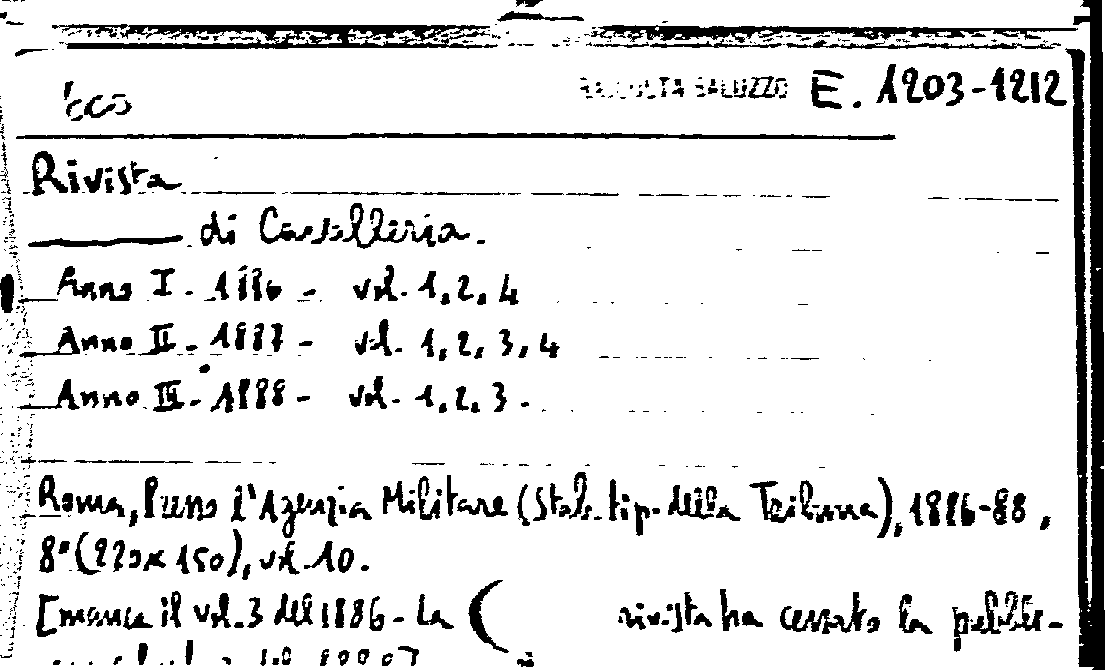 RACCOLTA SALUZZO E. 1203-1212
Rivista
di Cavalleria.
Anno I. 1886 - vol. 1, 2, 4
Anno II. 1887 - vol. 1, 2, 3, 4
Anno III. 1888 - vol. 1, 2, 3.
Roma, Presso l'Agenzia Militare (Stab. tip. della Tribuna), 1886-88,
8° (220 x 150), vol. 10.
[manca il vol. 3 del 1886 - La ( rivista ha cessato la pubbli-